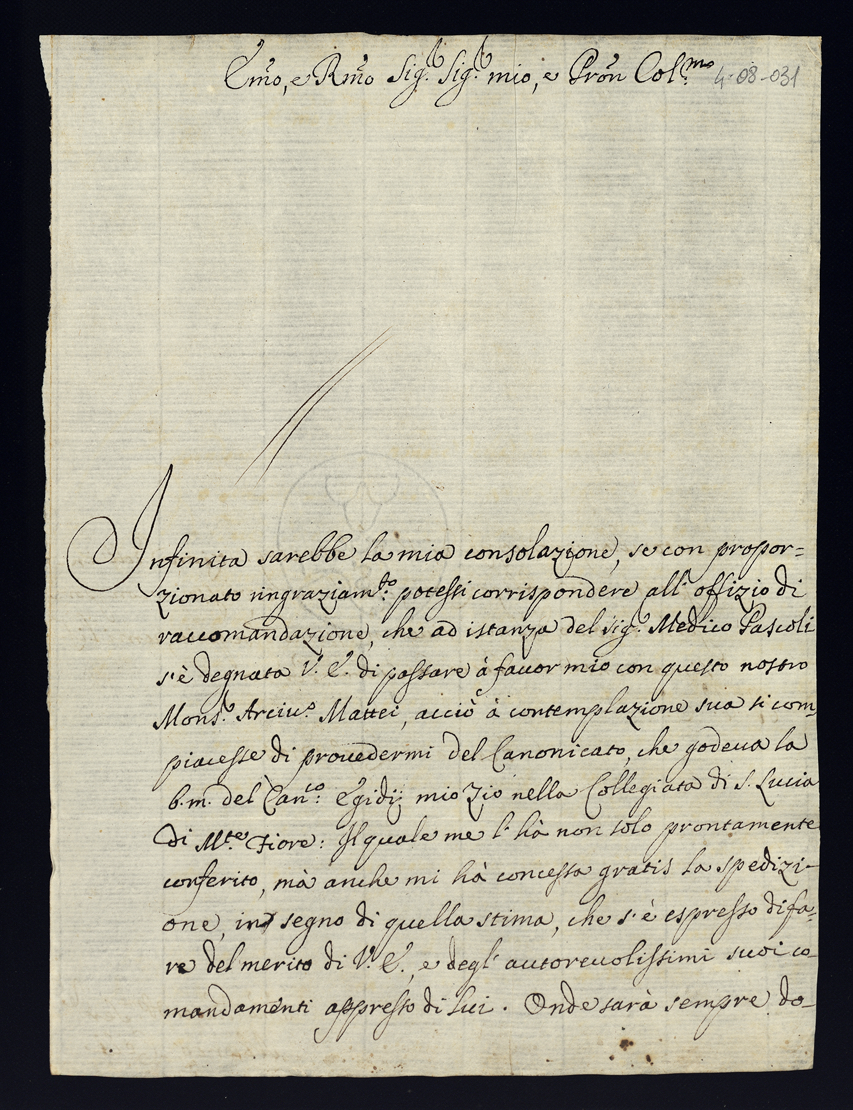 Em̃o, e Rm̃o Sig.r Sig.r mio, e Prõn Col.mo 4-08-031
Infinita sarebbe la mia consolazione, se con propor=
zionato ringraziam.to potessi corrispondere all' offizio di
raccomandazione, che ad istanza del Sig.r Medico Pascoli
s'è degnata V. E. di passare à favor mio con questo nostro
Mons.r Arciv.o Mattei, acciò à contemplazione sua si com
piacesse di provedermi del Canonicato, che godeva la
b. m. del Can.co Egidij mio Zio nella Collegiata di S. Lucia
di M.te Fiore: Il quale me l' hà non solo prontamente
conferito, mà anche mi hà concessa gratis la spedizi-
one, in segno di quella stima, che s'è espresso di fa=
re del merito di V. E., e degl' autorevolissimi suoi co-
mandamenti appresso di lui. Onde sarà sempre do-